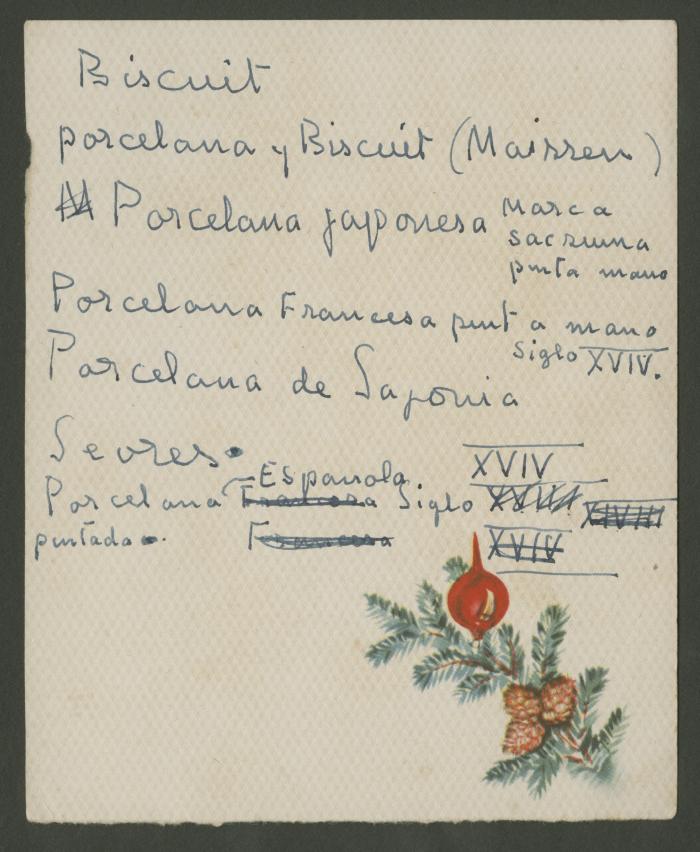 Biscuit
porcelana y Biscuit (Maissen)
Porcelana japonesa Marca
sacsuma
pinta mano
Porcelana Francesa pinta mano
Siglo XVIV.
Porcelana de Saponia
Sevres.
Española XVIV
Porcelana Francesa Siglo XVIII XIVIII
pintada. Francesa XVIV